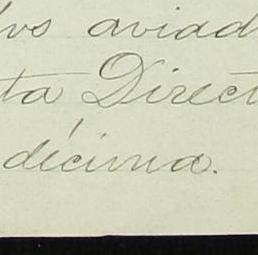 los aviad
ta Direct
décima.